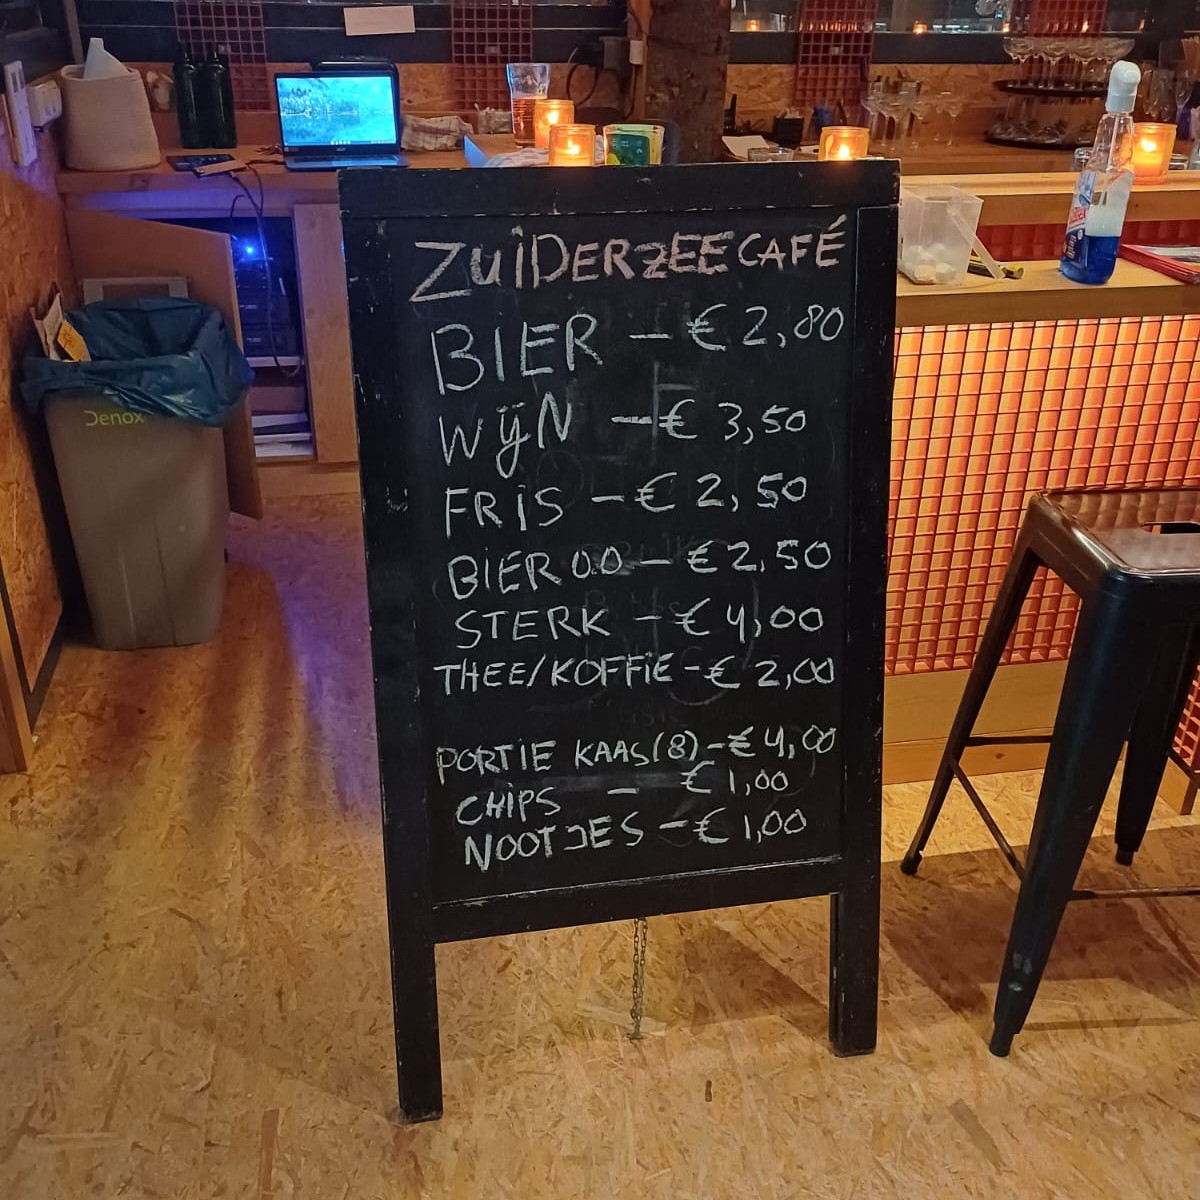 ZUIDERZEECAFÉ
BIER – € 2,80
WIJN – € 3,50
FRIS – € 2,50
BIER 0.0 – € 2,50
STERK – € 4,00
THEE/KOFFIE – € 2,00
PORTIE KAAS (8) – € 4,00
CHIPS – € 1,00
NOOTJES – € 1,00
Denox